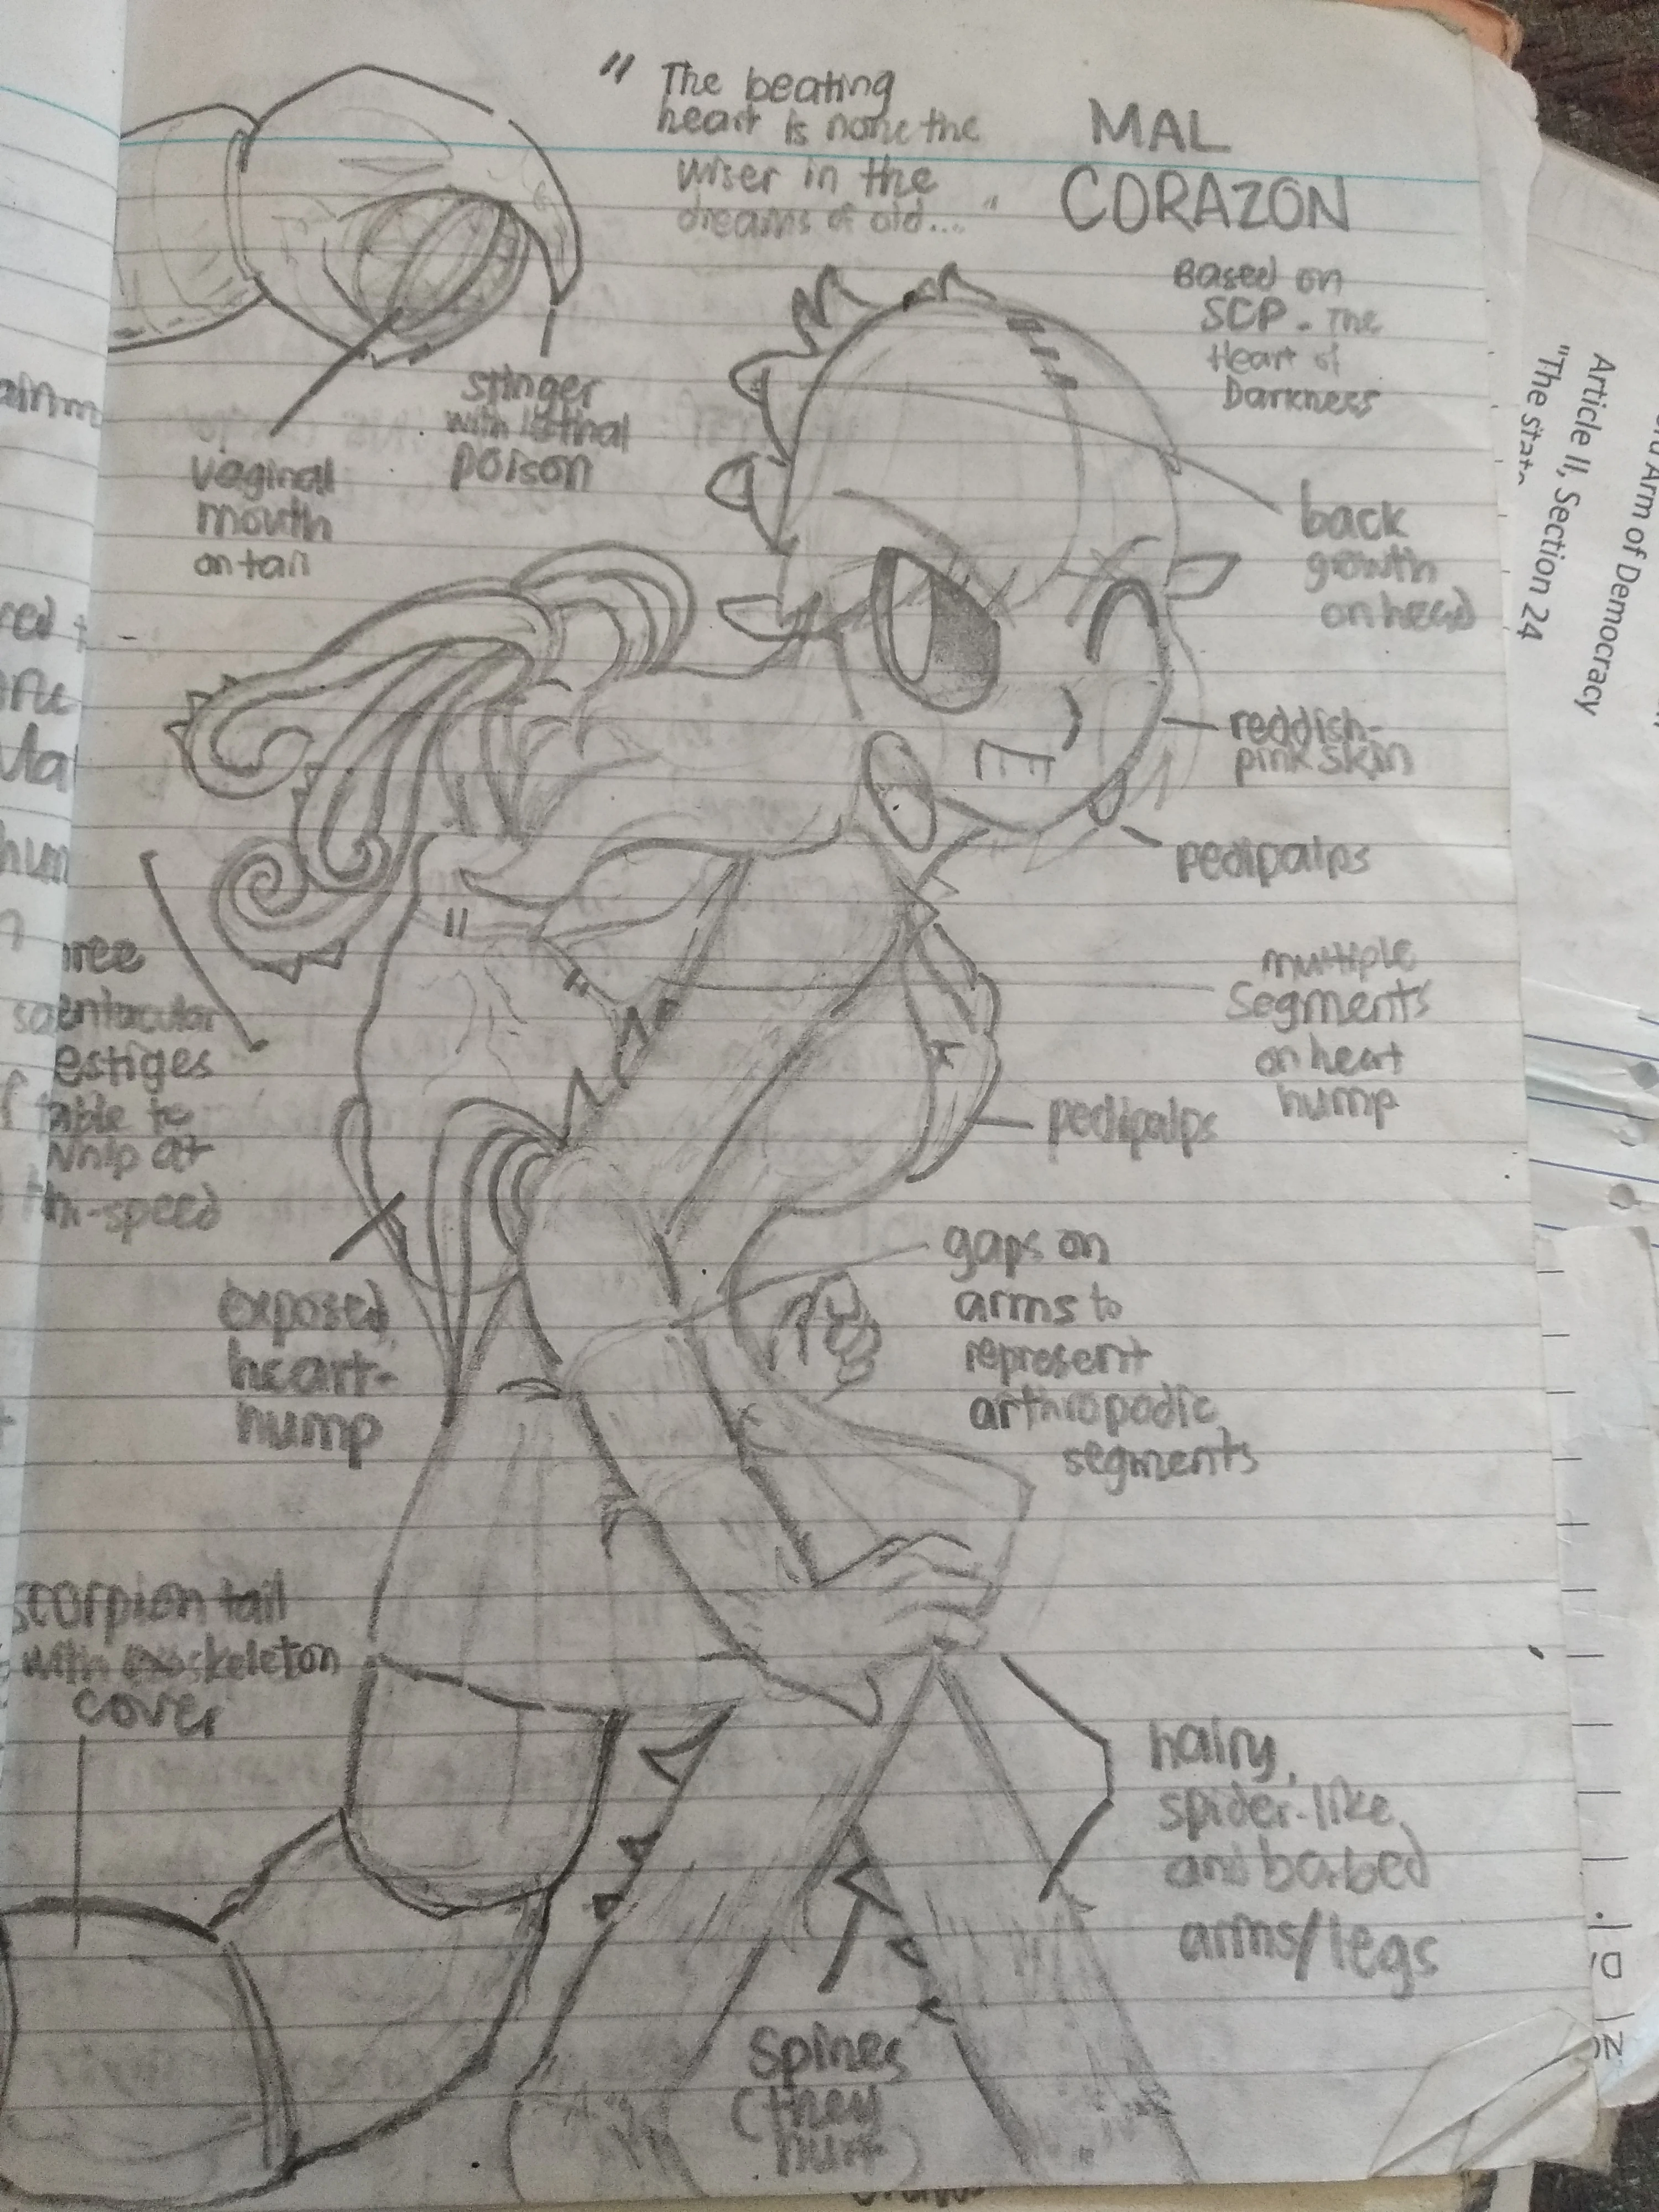 " The beating
heart is none the
wiser in the
dreams of old... "
MAL
CORAZON
Based on
SCP - The
Heart of
Darkness
stinger
with lethal
poison
vaginal
mouth
on tail
back
growth
on head
reddish-
pink skin
pedipalps
multiple
segments
on heart
hump
pedipalps
hree
entacular
estiges
able to
whip at
-speed
exposed
heart-
hump
gaps on
arms to
represent
arthropodic
segments
scorpion tail
with exoskeleton
cover
hairy,
spider-like
and barbed
arms/legs
spines
(they
hurt)
Arm of Democracy
Article II, Section 24
"The state